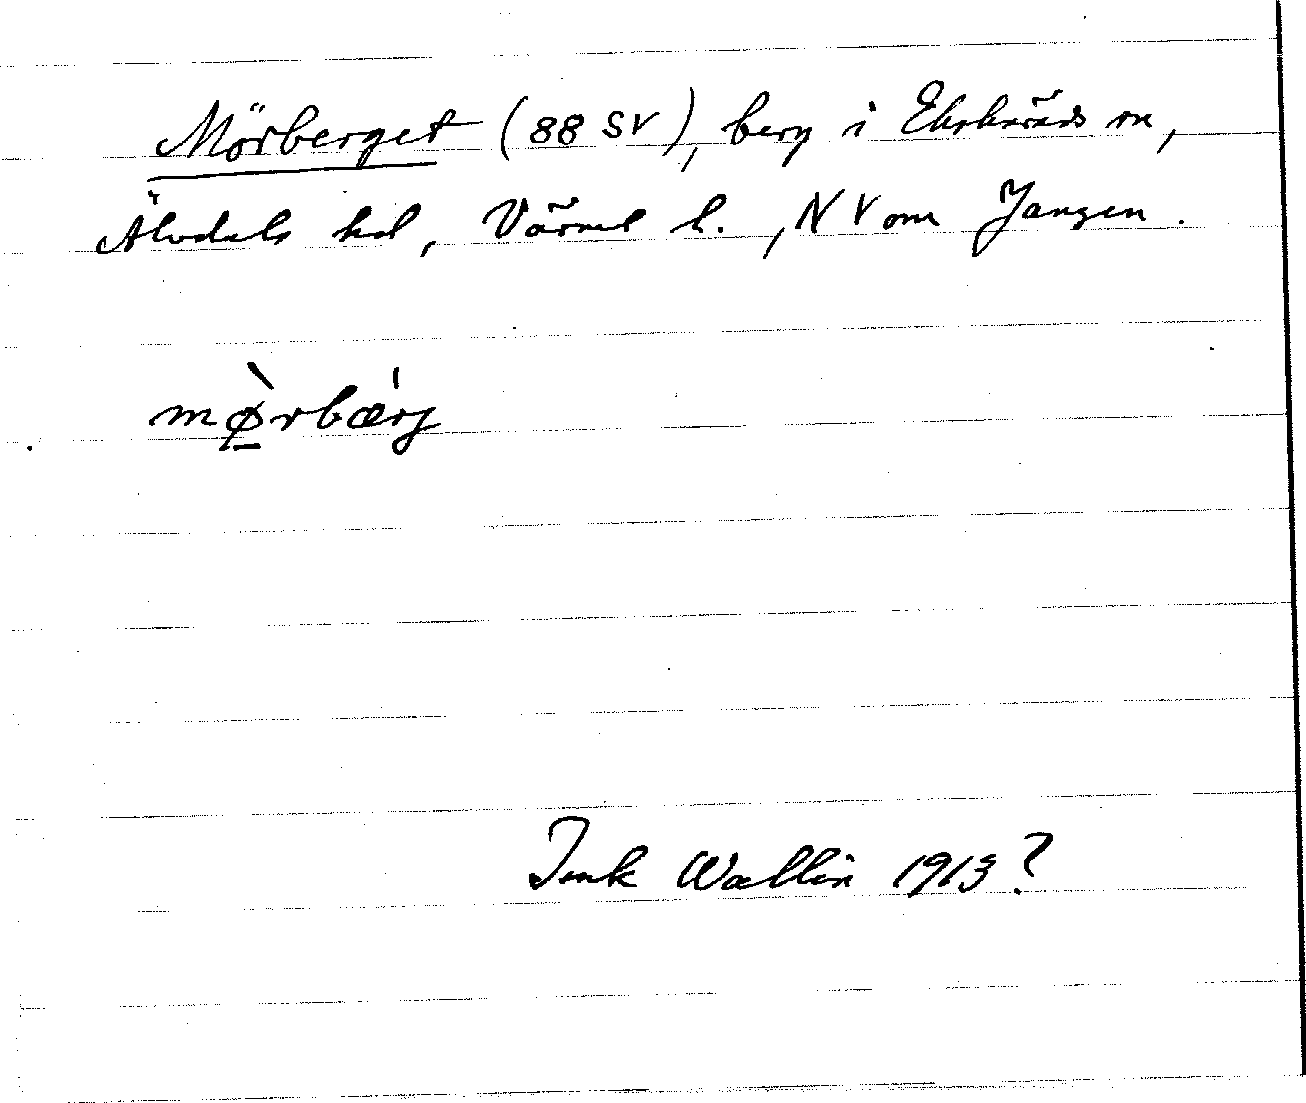 Mörberget (88 SV), berg i Ekshärads sn,
Älvdals hd, Värml l., NV om Jangen.
mø̲̀rbæ̍rj
Junk Wallin 1913?